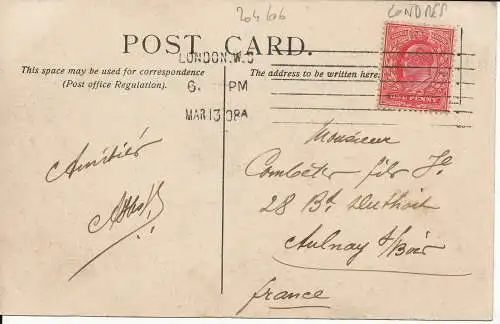 204/06
LONDRES
POST CARD.
This space may be used for correspondence
(Post office Regulation).
The address to be written here.
LONDON.W.C
6. PM
MAR 13 08A
ONE PENNY
Amitiés
Monsieur
fils
28 Bd
Aulnay s/Bois
france